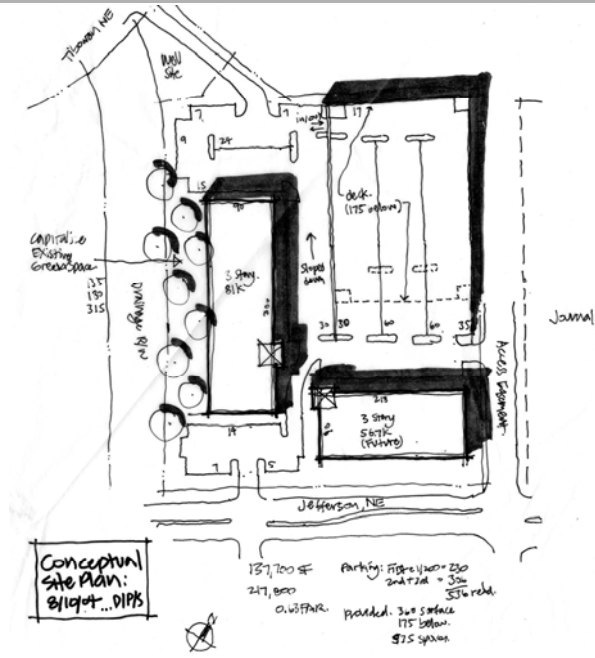 Tiburon NE
Well
Site
7
9
in/out
17
9
24
15
90
deck.
(175 below)
Capitalize
Existing
Greenspace
135
130
315
3 Story
81K
300
Sloped
down
Drainage R/W
30 30 60 60 35
Journal
Access Easement
218
3 Story
56.7K
(Future)
14
7
5
Jefferson, NE
Conceptual
Site Plan:
8/10/04...D/P/S
137,700 SF
217,800
0.63 FAR.
Parking: First @ 1/200 = 230
2nd + 3rd = 306
536 reqd.
Provided. 360 surface
175 below.
535 spaces.